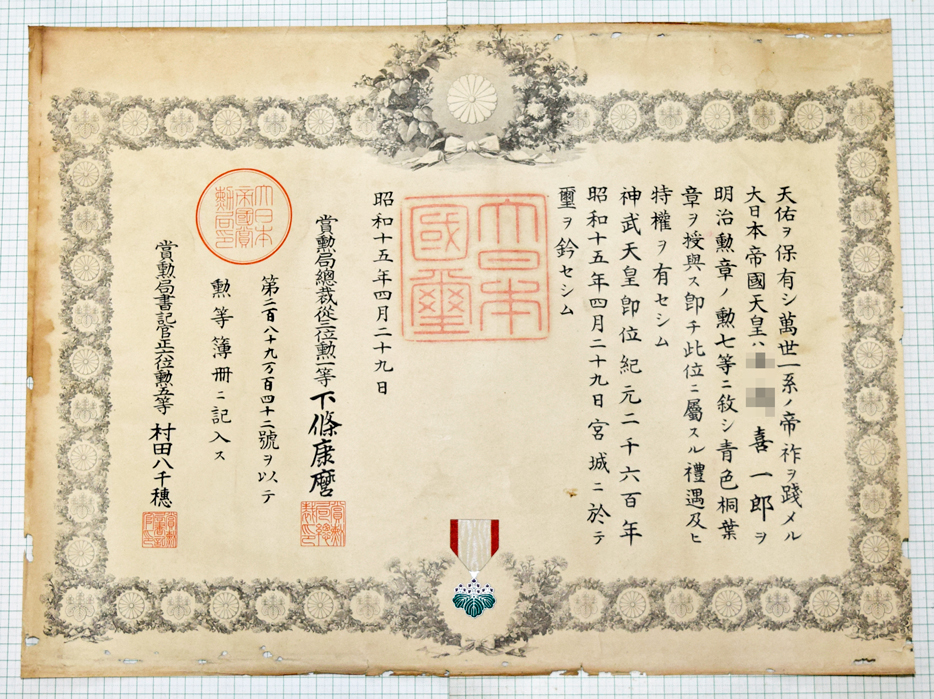 天佑ヲ保有シ萬世一系ノ帝祚ヲ踐メル
大日本帝國天皇ハ 喜一郎ヲ
明治勲章ノ勲七等ニ敘シ青色桐葉
章ヲ授與ス卽チ此位ニ屬スル禮遇及ヒ
特權ヲ有セシム
神武天皇卽位紀元二千六百年
昭和十五年四月二十九日宮城ニ於テ
璽ヲ鈐セシム
大日本
國璽
昭和十五年四月二十九日
賞勲局總裁從三位勲一等下條康麿
賞勲
局總
裁印
第二百八十九万百四十二號ヲ以テ
勲等簿冊ニ記入ス
大日本
帝國賞
勲局印
賞勲局書記官正六位勲五等 村田八千穗